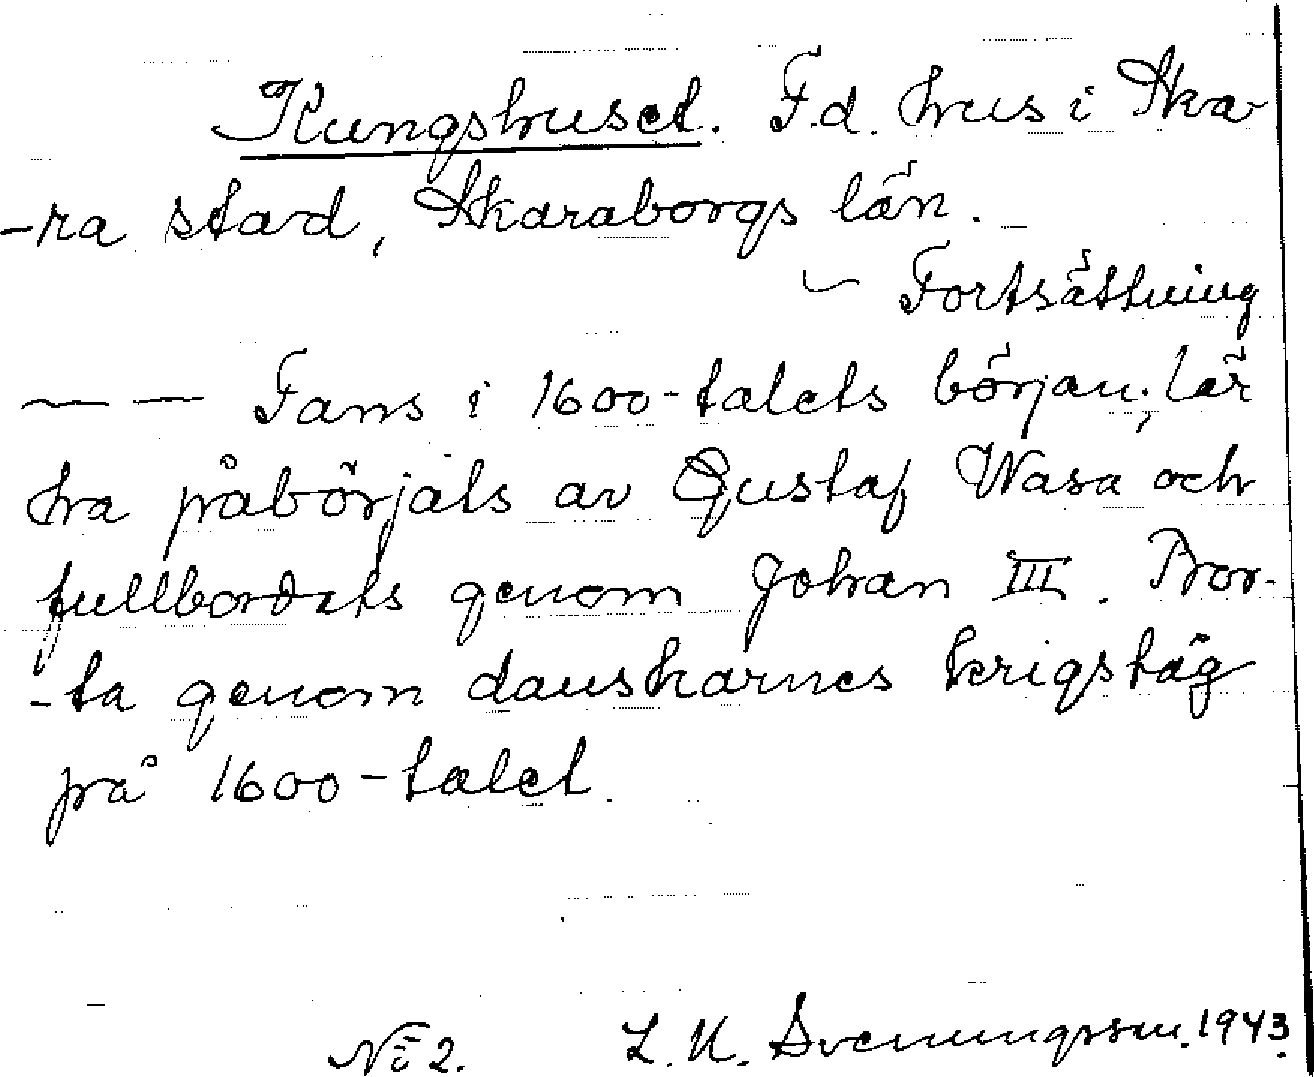 Kungshuset. F.d. hus i Ska-
-ra stad, Skaraborgs län.
~ Fortsättning
— — Fans i 1600-talets början; lär
ha påbörjats av Gustaf Wasa och
fullbordats genom Johan III. Bor-
-ta genom danskarnes krigståg
på 1600-talet.
No 2. L. N. Svenungsson. 1943.